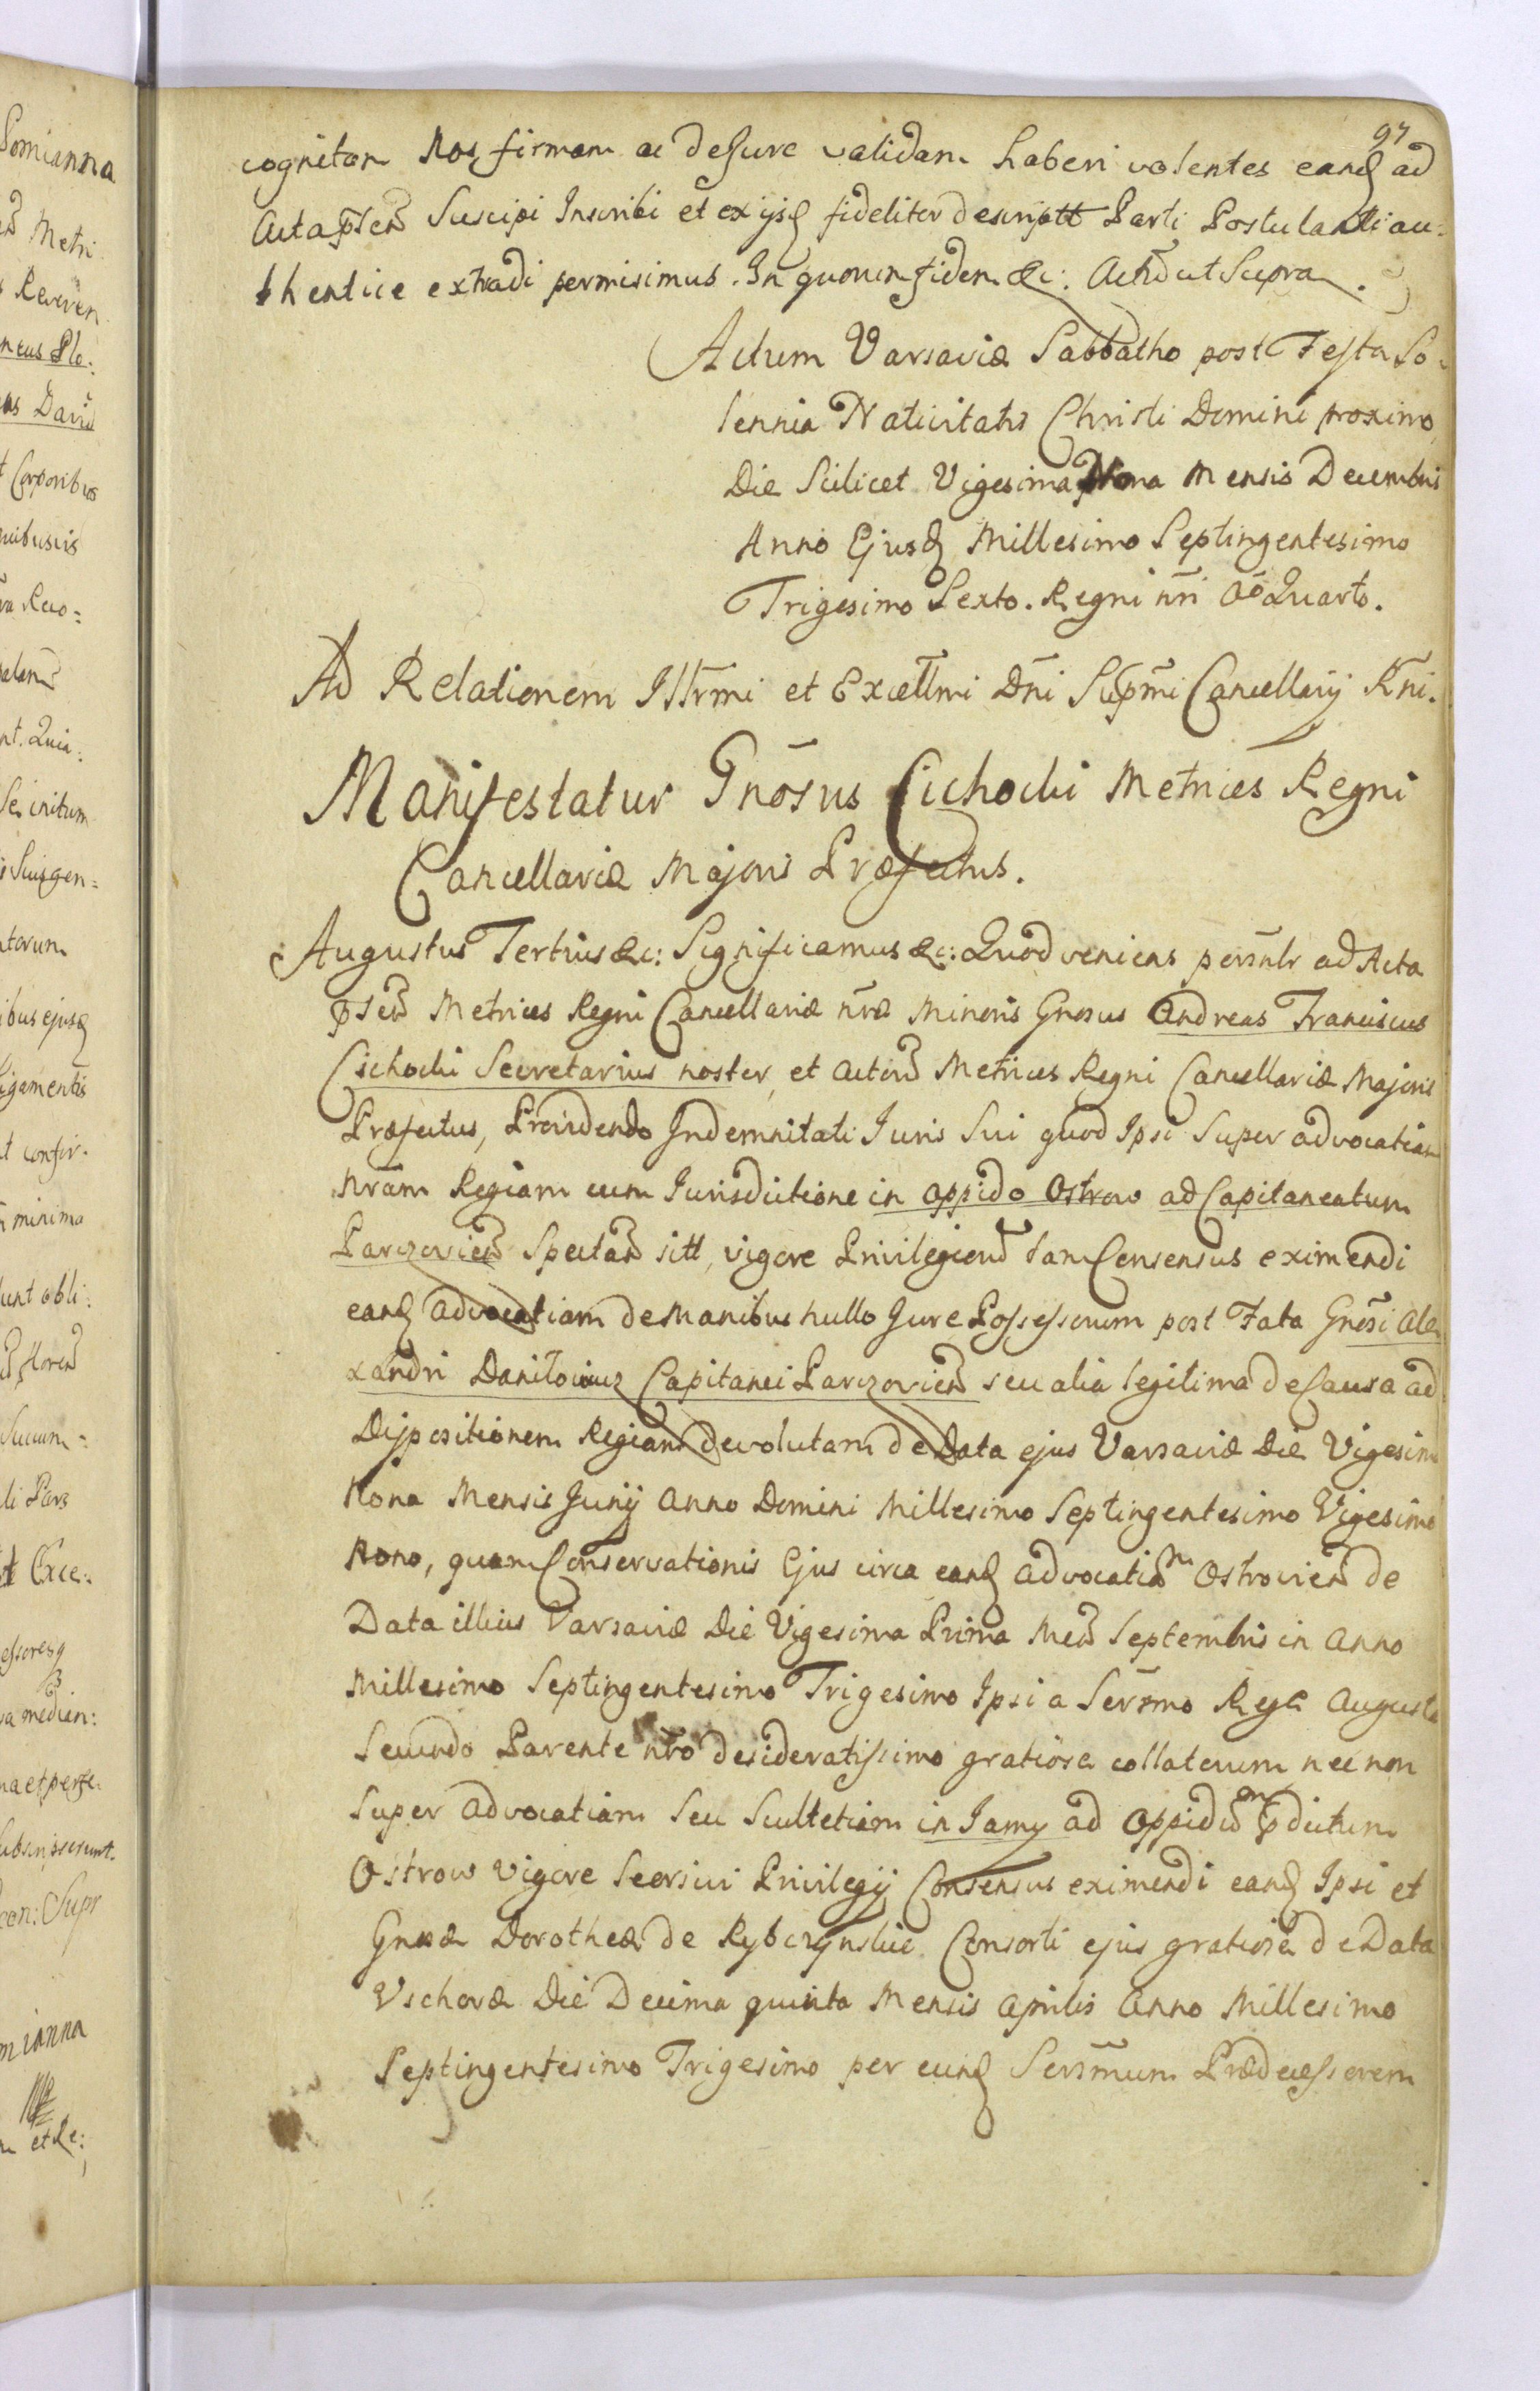 97
cognitam Nos firmam ac de Jure validam haberi volentes eandq ad
Acta pñten Suscipi Inscribi et ex ijsq fideliter descriptt Parti Postulanti au=
thentice extradi permisimus. In quorum fidem &c: Actũ ut Supra.
Actum Varsaviæ Sabbatho post Festa So=
lennia Nativitatis Christi Domini proximo
Die Scilicet Vigesima Nona Mensis Decembris
Anno Ejusd Millesimo Septingentesimo
Trigesimo Sexto. Regni nri Ao Quarto.
Ad Relationem Illrmi et Excellmi Dni Supmi Cancellarij Rni.
Manifestatur Gnosus Cichocki Metrices Regni
Cancellariæ Majoris Præfectus.
Augustus Tertius &c: Significamus &c: Quod veniens persnlr ad Acta
pñten Metrices Regni Cancellariæ nræ Minoris Gnosus Andreas Franciscus
Cichocki Secretarius noster, et Actorũ Metrices Regni Cancellariæ Majoris
Præfectus, Providendo Indemnitati Juris Sui quod Ipsi Super advocatiam
nram Regiam cum Jurisdictione in oppido Ostrow ad Capitaneatum
Parczovien Spectan sitt, vigore Privilegiorũ tam Consensus eximendi
eand advocatiam de Manibus nullo Jure Possessorum post Fata Gnosi Ale
xandri Daniłowicz Capitanei Parczovien seu alia legitima de Causa ad
Dispositionem Regiam devolutam de Data ejus Varsaviæ Die Vigesima
Nona Mensis Junij Anno Domini Millesimo Septingentesimo Vigesimo
Nono, quam Conservationis Ejus circa eand advocatiam Ostrovien de
Data illius Varsaviæ Die Vigesima Prima Men Septembris in Anno
Millesimo Septingentesimo Trigesimo Ipsi a Sermo Rege Augusto
Secundo Parente nro desideratissimo gratiose collatorum nec non
Super Advocatiam Seu Scultetiam in Jamy ad Oppidum pdictum
Ostrow vigore Seorsivi Privilegij Consensus eximendi eand Ipsi et
Gnosæ Dorotheæ de Rybczynskie Consorti ejus gratiose de Data
Vschovæ Die Decima quinta Mensis Aprilis Anno Millesimo
Septingentesimo Trigesimo per eund Sermum Prædecessorem